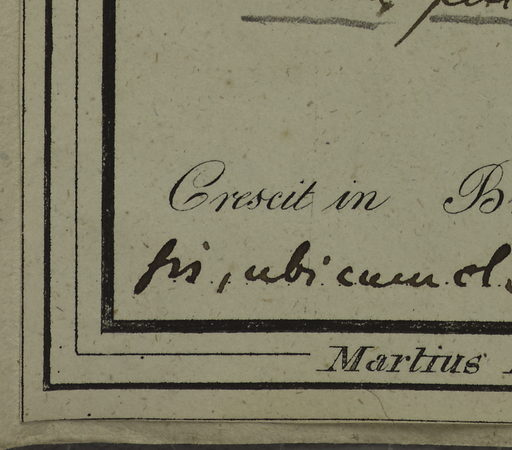 Crescit in B
sis, ubi cum cl.
Martius